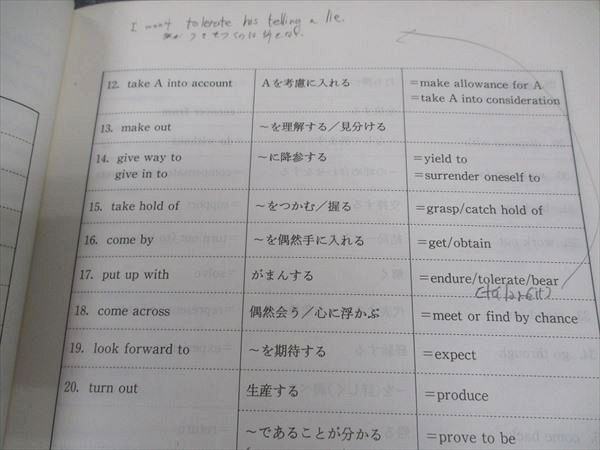 I won't tolerate his telling a lie.
12. take A into account Aを考慮に入れる =make allowance for A
=take A into consideration
13. make out ～を理解する/見分ける
14. give way to ～に降参する =yield to
give in to =surrender oneself to
15. take hold of ～をつかむ/握る =grasp/catch hold of
16. come by ～を偶然手に入れる =get/obtain
17. put up with がまんする =endure/tolerate/bear
18. come across 偶然会う/心に浮かぶ =meet or find by chance
19. look forward to ～を期待する =expect
20. turn out 生産する =produce
～であることが分かる =prove to be